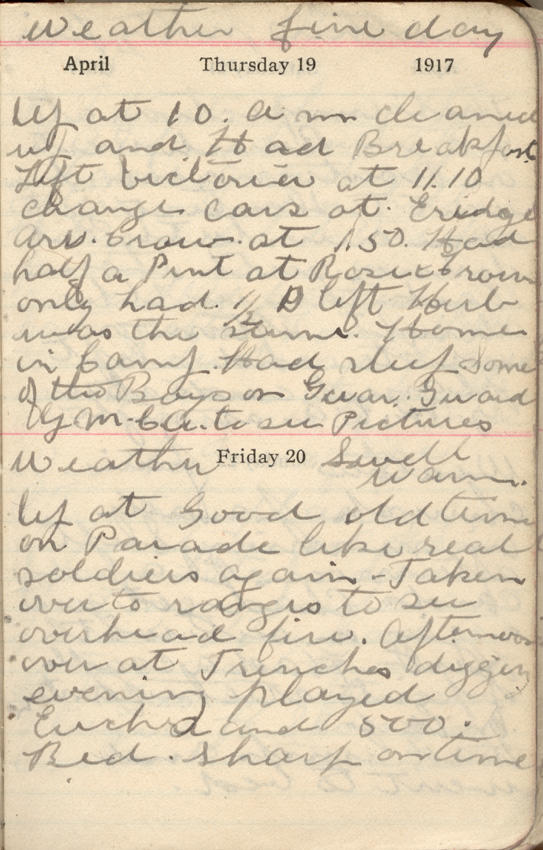 Weather fine day
April Thursday 19 1917
Up at 10. a m cleaned
up and Had Breakfast
Left Victoria at 11.10
change cars at Eridge
arv. Crow. at 1.50. Had
half a Pint at Rose & Crown
only had 1½ D left Herb
was the same. Home
in Camp. Had sleep Some
of the Boys on Guard
Y M-C.A. to see Pictures
Weather Friday 20 Swell
Warm.
Up at Good old time
on Parade like real
soldiers again - Taken
over to ranges to see
overhead fire. Afternoon
over at Trenches digging
evening played
Euchre and 500.
Bed. sharp on time